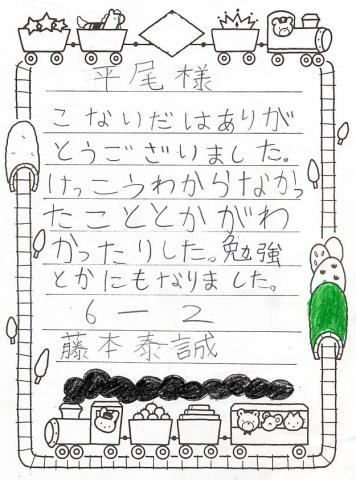 平尾様
こないだはありが
とうございました。
けっこうわからなかっ
たこととかがわ
かったりした。勉強
とかにもなりました。
6－2
藤本泰誠